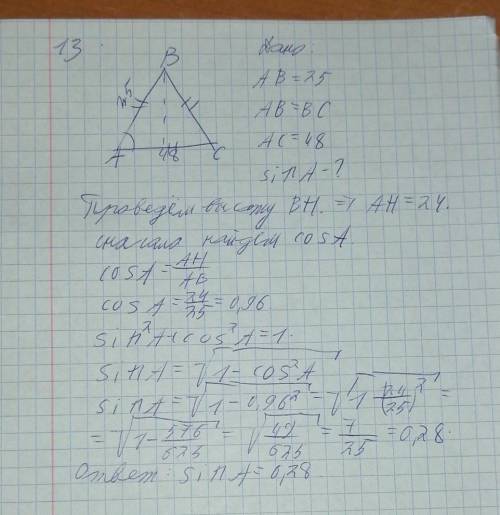 13.
B
25
A
48
C
Дано:
AB = 25
AB = BC
AC = 48
sin A - ?
Проведём высоту BH. ⇒ AH = 24.
сначала найдём cos A.
cos A = AH/AB
cos A = 24/25 = 0,96
sin²A + cos²A = 1.
sin A = √(1 - cos²A)
sin A = √(1 - 0,96²) = √(1 (24/25)²) =
= √(1 - 576/625) = √(49/625) = 7/25 = 0,28.
Ответ: sin A = 0,28.